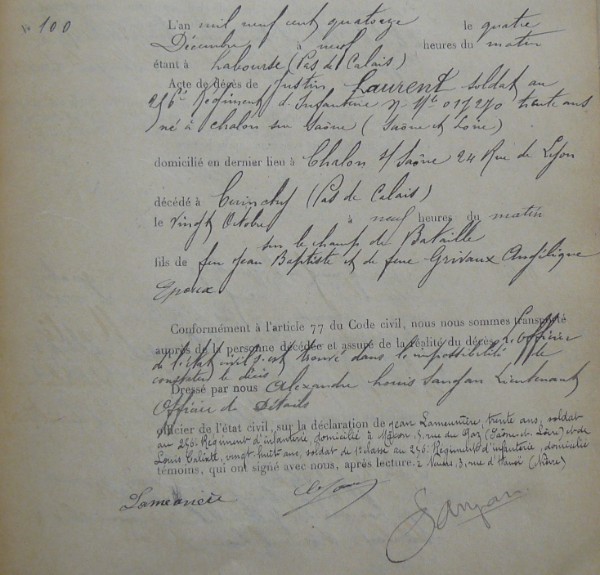 N° 100
L'an mil neuf cent quatorze le quatre
Décembre à neuf heures du matin
étant à Labourse (Pas de Calais)
Acte de décès de Justin Laurent soldat au
256e Régiment d'Infanterie n° Mle 017270 trente ans
né à Chalon sur Saône (Saône et Loire)
domicilié en dernier lieu à Chalon s/ Saône 24 Rue de Lyon
décédé à Cuinchy (Pas de Calais)
le vingt Octobre à neuf heures du matin
sur le champ de Bataille
fils de feu Jean Baptiste et de feue Grivaux Angélique
Epoux
Conformément à l'article 77 du Code civil, nous nous sommes transporté
auprès de la personne décédée et assuré de la réalité du décès. L'Officier
de l'état civil s'est trouvé dans l'impossibilité de
constater le décès
Dressé par nous Alexandre Louis Sangan Lieutenant
Officier de Détails
officier de l'état civil, sur la déclaration de Jean trente ans, soldat
au 256e Régiment d'infanterie, domicilié à Mâcon, 5, rue du Gaz (Saône-et-Loire) et de
Louis vingt huit ans, soldat de 1e classe au 256e Régiment d'infanterie, domicilié
témoins, qui ont signé avec nous, après lecture. à 3, rue (Nièvre)